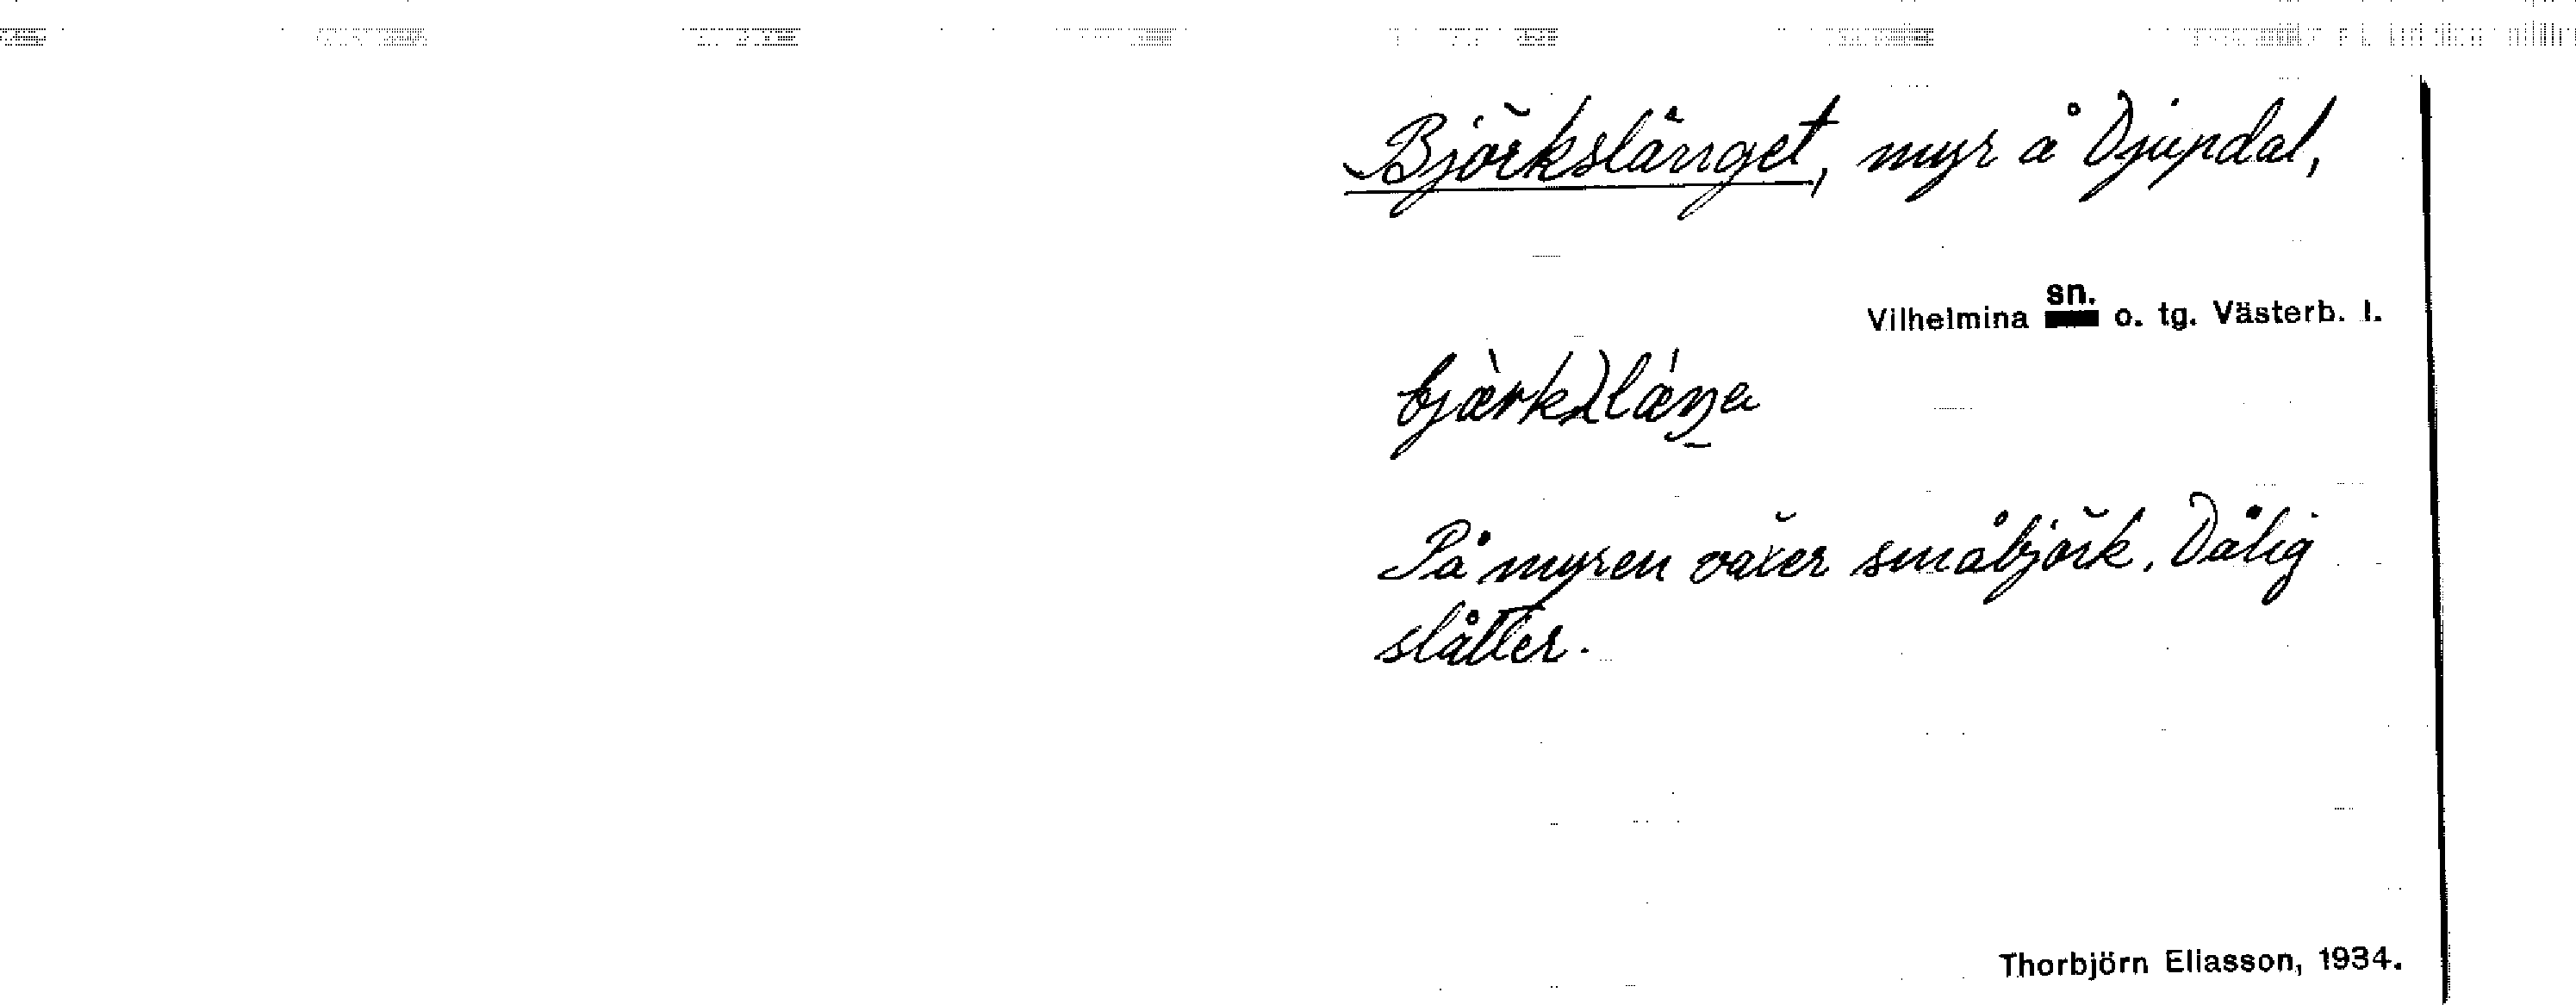 Björkslänget, myr å Djupdal,
Vilhelmina sn. o. tg. Västerb. l.
På myren växer småbjörk. Dålig
slåtter.
Thorbjörn Eliasson, 1934.